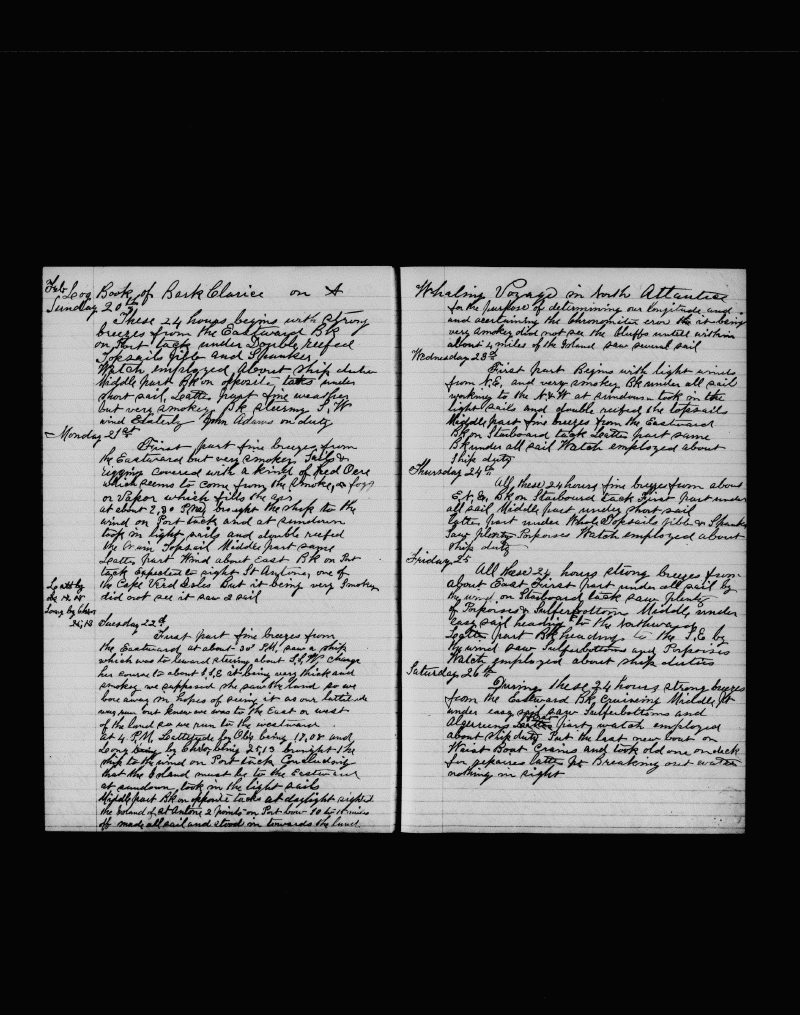 Feb Log Book of Bark Clarice on A
Sunday 20th
These 24 hours begins with strong
breezes from the Eastward Bk
on Port tack under Double reefed
Topsails Gibb and Spanker.
Watch employed About ship duties
Middle part Bk on opposite tacks under
short sail, Latter part fine weather
but very smokey Bk steering S. W
wind Easterly John Adams on duty
Monday 21st
First part fine breezes from
the Eastward but very smokey Sails &
rigging covered with a kind of Red Ocre
which seems to come from the smoke, or fogg
or Vapor which fills the
at about 2,30 P.M. braught the ship to the
wind on Port tack and at sundown
took in light sails and double reefed
the Main Topsail Middle part same
Latter part Wind about East Bk on Port
tack Expected to sight St Antone, one of
the Cape Verd Isles But it being very Smokey
did not see it saw 2 sail
Latt by
Long by Chro
Tuesday 22d
First part fine breezes from
the Eastward at about 30 P.M. saw a ship
which was to leward steering about S.S.W. Change
her course to about S.S.E it being very thick and
smokey we supposed she saw the land so we
bore away in hopes of seing it as our lattitude
was run out knew we was to the East or west
of the land so we run to the westward.
at 4 P.M. Lattitude by Obs being 18,08 and
Long being by Chro, being 25,13 braught the
ship to the wind on Port tack Concluding
that the Island must be to the Eastward
at sundown took in the light sails
Middle part Bk on opposite tacks at daylight sighted
the Island of St Antone 2 points on Port bow 10 to miles
off made all sail and stood in towards the land.
Whaling Voyage in North Attantice
for the purpose of determining our longitude and
and acertaining the chronomiter eror tho it being
very smokey did not see the bluffs untill within
about 4 miles of the Island saw several sail
Wednesday 23d
First part Begins with light winds
from N.E, and very smokey Bk under all sail
working to the N & W at sundown took in the
light sails and double reefed the topsails
Middle part fine breezes from the Eastward
Bk on Starboard tack Latter part same
Bk under all sail Watch employed about
Ship duty
Thursday 24th
All these 24 hours fine breezes from about
E.N.E, Bk on Starboard tack First part under
all sail Middle part under short sail
latter part under Whole Topsails jibb & Spanker
Saw plenty Porpoises Watch employed about
ship duty
Friday 25
All these 24 hours strong breezes from
about East First part under all sail by
the wind on Starboard tack saw plenty
of Porpoises & Sulferbottom Middle under
easy sail heading to the northward
Latter part Bk heading to the S.E. by
the wind saw Sulferbottoms and Porpoises
Watch employed about ship duties
Saturday 26th
During these 24 hours strong breezes
from the Eastward Bk Cruiseing Middle Pt
under easy sail saw Sulferbottoms and
Algereens Latter part watch employed
about ship duty Put the last new boat on
Waist Boat Crains and took old one on deck
for repaires latter Pt Breaking out water
nothing in sight